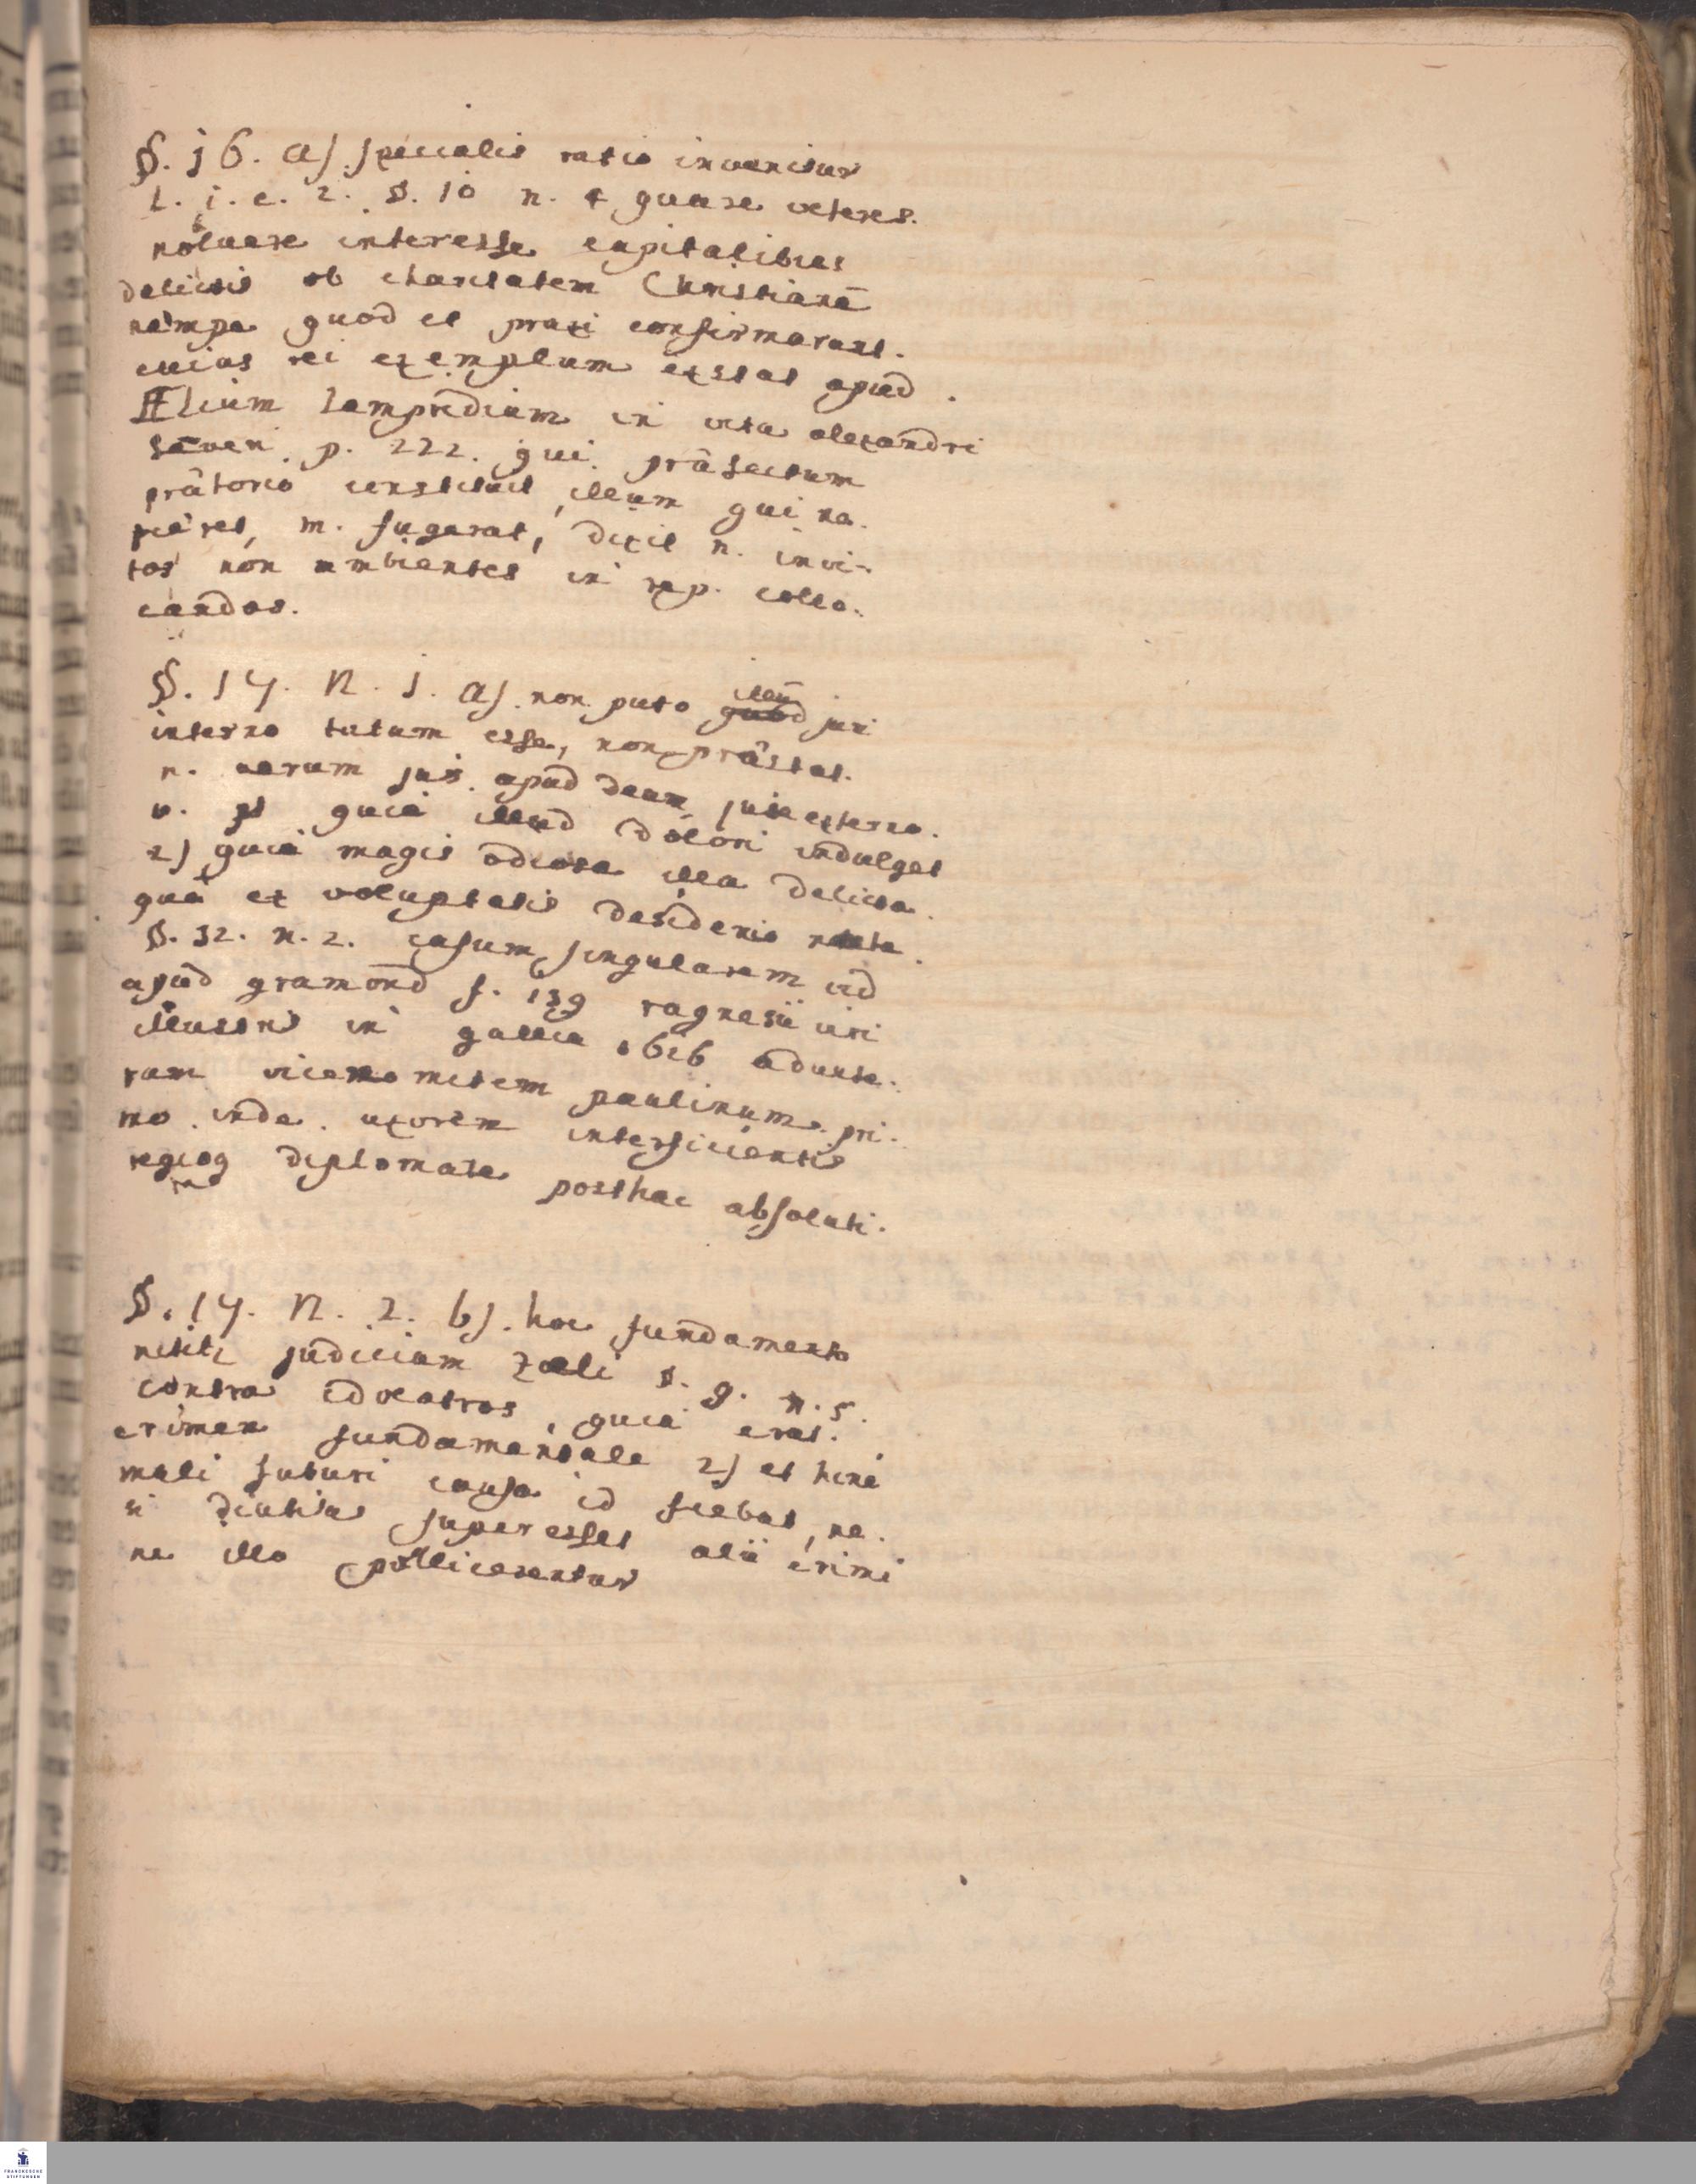 §. 16. a). specialis ratio invenitur
L. 1. c. 2. §. 10 n. 4 quare veteres.
noluere interesse capitalibus
delictis ob charitatem Christianā
nempe quod et praxi confirmarunt.
cuius rei exemplum exstat apud.
Ælium Lampridium in vita alexandri
Severi p. 222. qui prâfectum
prâtorio constituit, illum qui na.
m. fugerat, dixit n. invi-
tos non ambientes in rep. collo.
candos.
§. 17. N. 1. a). non puto quod illum juri
interno tutum esse, non prâstat.
n. verum jus apud deum, juri externo.
v. quia illud dolori indulget
2) quia magis odiosa illa delicta.
quâ ex voluptatis desiderio
§. 32. n. 2. casum singularem vid
apud gramond f. 139 ragnesii viri
illustris in gallia 1616 adulte.
ram vicecomitem paulinum. pri.
mo inde uxorem interficientis
regioq diplomate posthac absoluti.
§. 17. N. 2. b). hoc fundamento
nititi judicium zeli §. 9. n. 5.
contra idolatras, quia erat.
crimen fundamentale 2) et hinc
mali futuri causa id fiebat, ne.
si diutius superesset alii crimi
ne illo pollicerentur
FRANCKESCHE
STIFTUNGEN